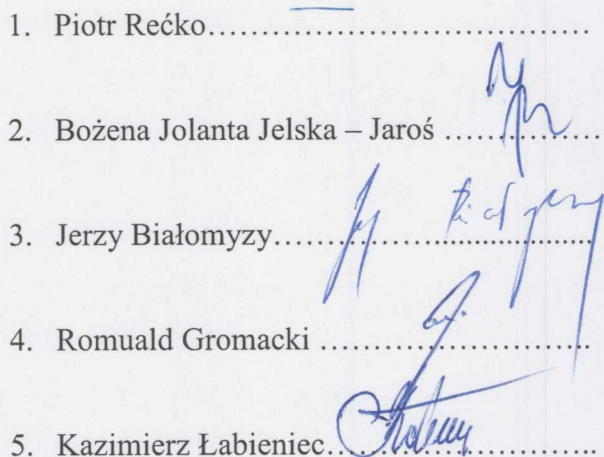 1. Piotr Rećko……………………………………
2. Bożena Jolanta Jelska – Jaroś ………………
3. Jerzy Białomyzy……………………………
4. Romuald Gromacki …………………………
5. Kazimierz Łabieniec…………………………